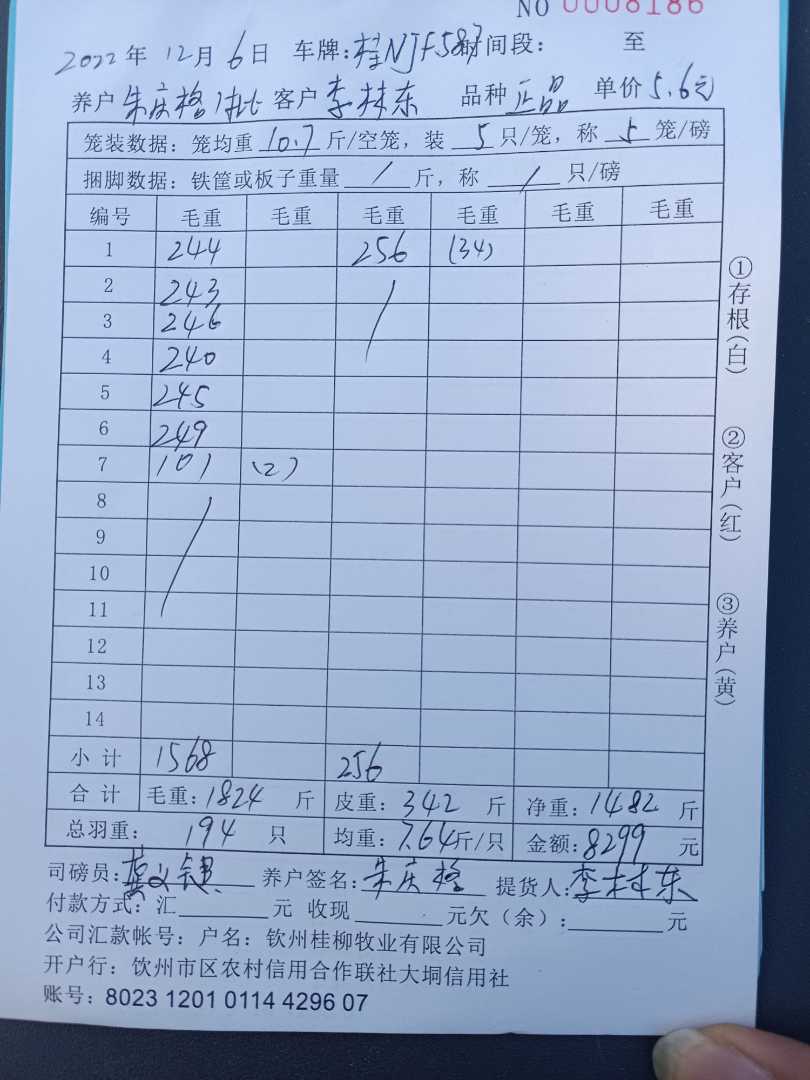 NO 0008186
2022年 12月6日 车牌:桂NJF587 时间段: 至
养户 朱庆格1批 客户 李林东 品种 正品 单价 5.6元
笼装数据:笼均重 10.7 斤/空笼,装 5 只/笼,称 5 笼/磅
捆脚数据:铁筐或板子重量 / 斤,称 / 只/磅
编号 毛重 毛重 毛重 毛重 毛重 毛重
1 244 256 (34)
2 243
3 246
4 240
5 245
6 249
7 101 (2)
8
9
10
11
12
13
14
小 计 1568 256
合 计 毛重:1824 斤 皮重:342 斤 净重:1482 斤
总羽重: 194 只 均重:7.64斤/只 金额:8299 元
司磅员: 养户签名:朱庆格 提货人:李林东
付款方式:汇 元 收现 元欠(余): 元
公司汇款帐号:户名:钦州桂柳牧业有限公司
开户行:饮州市区农村信用合作联社大垌信用社
账号:8023 1201 0114 4296 07
①存根(白)
②客户(红)
③养户(黄)